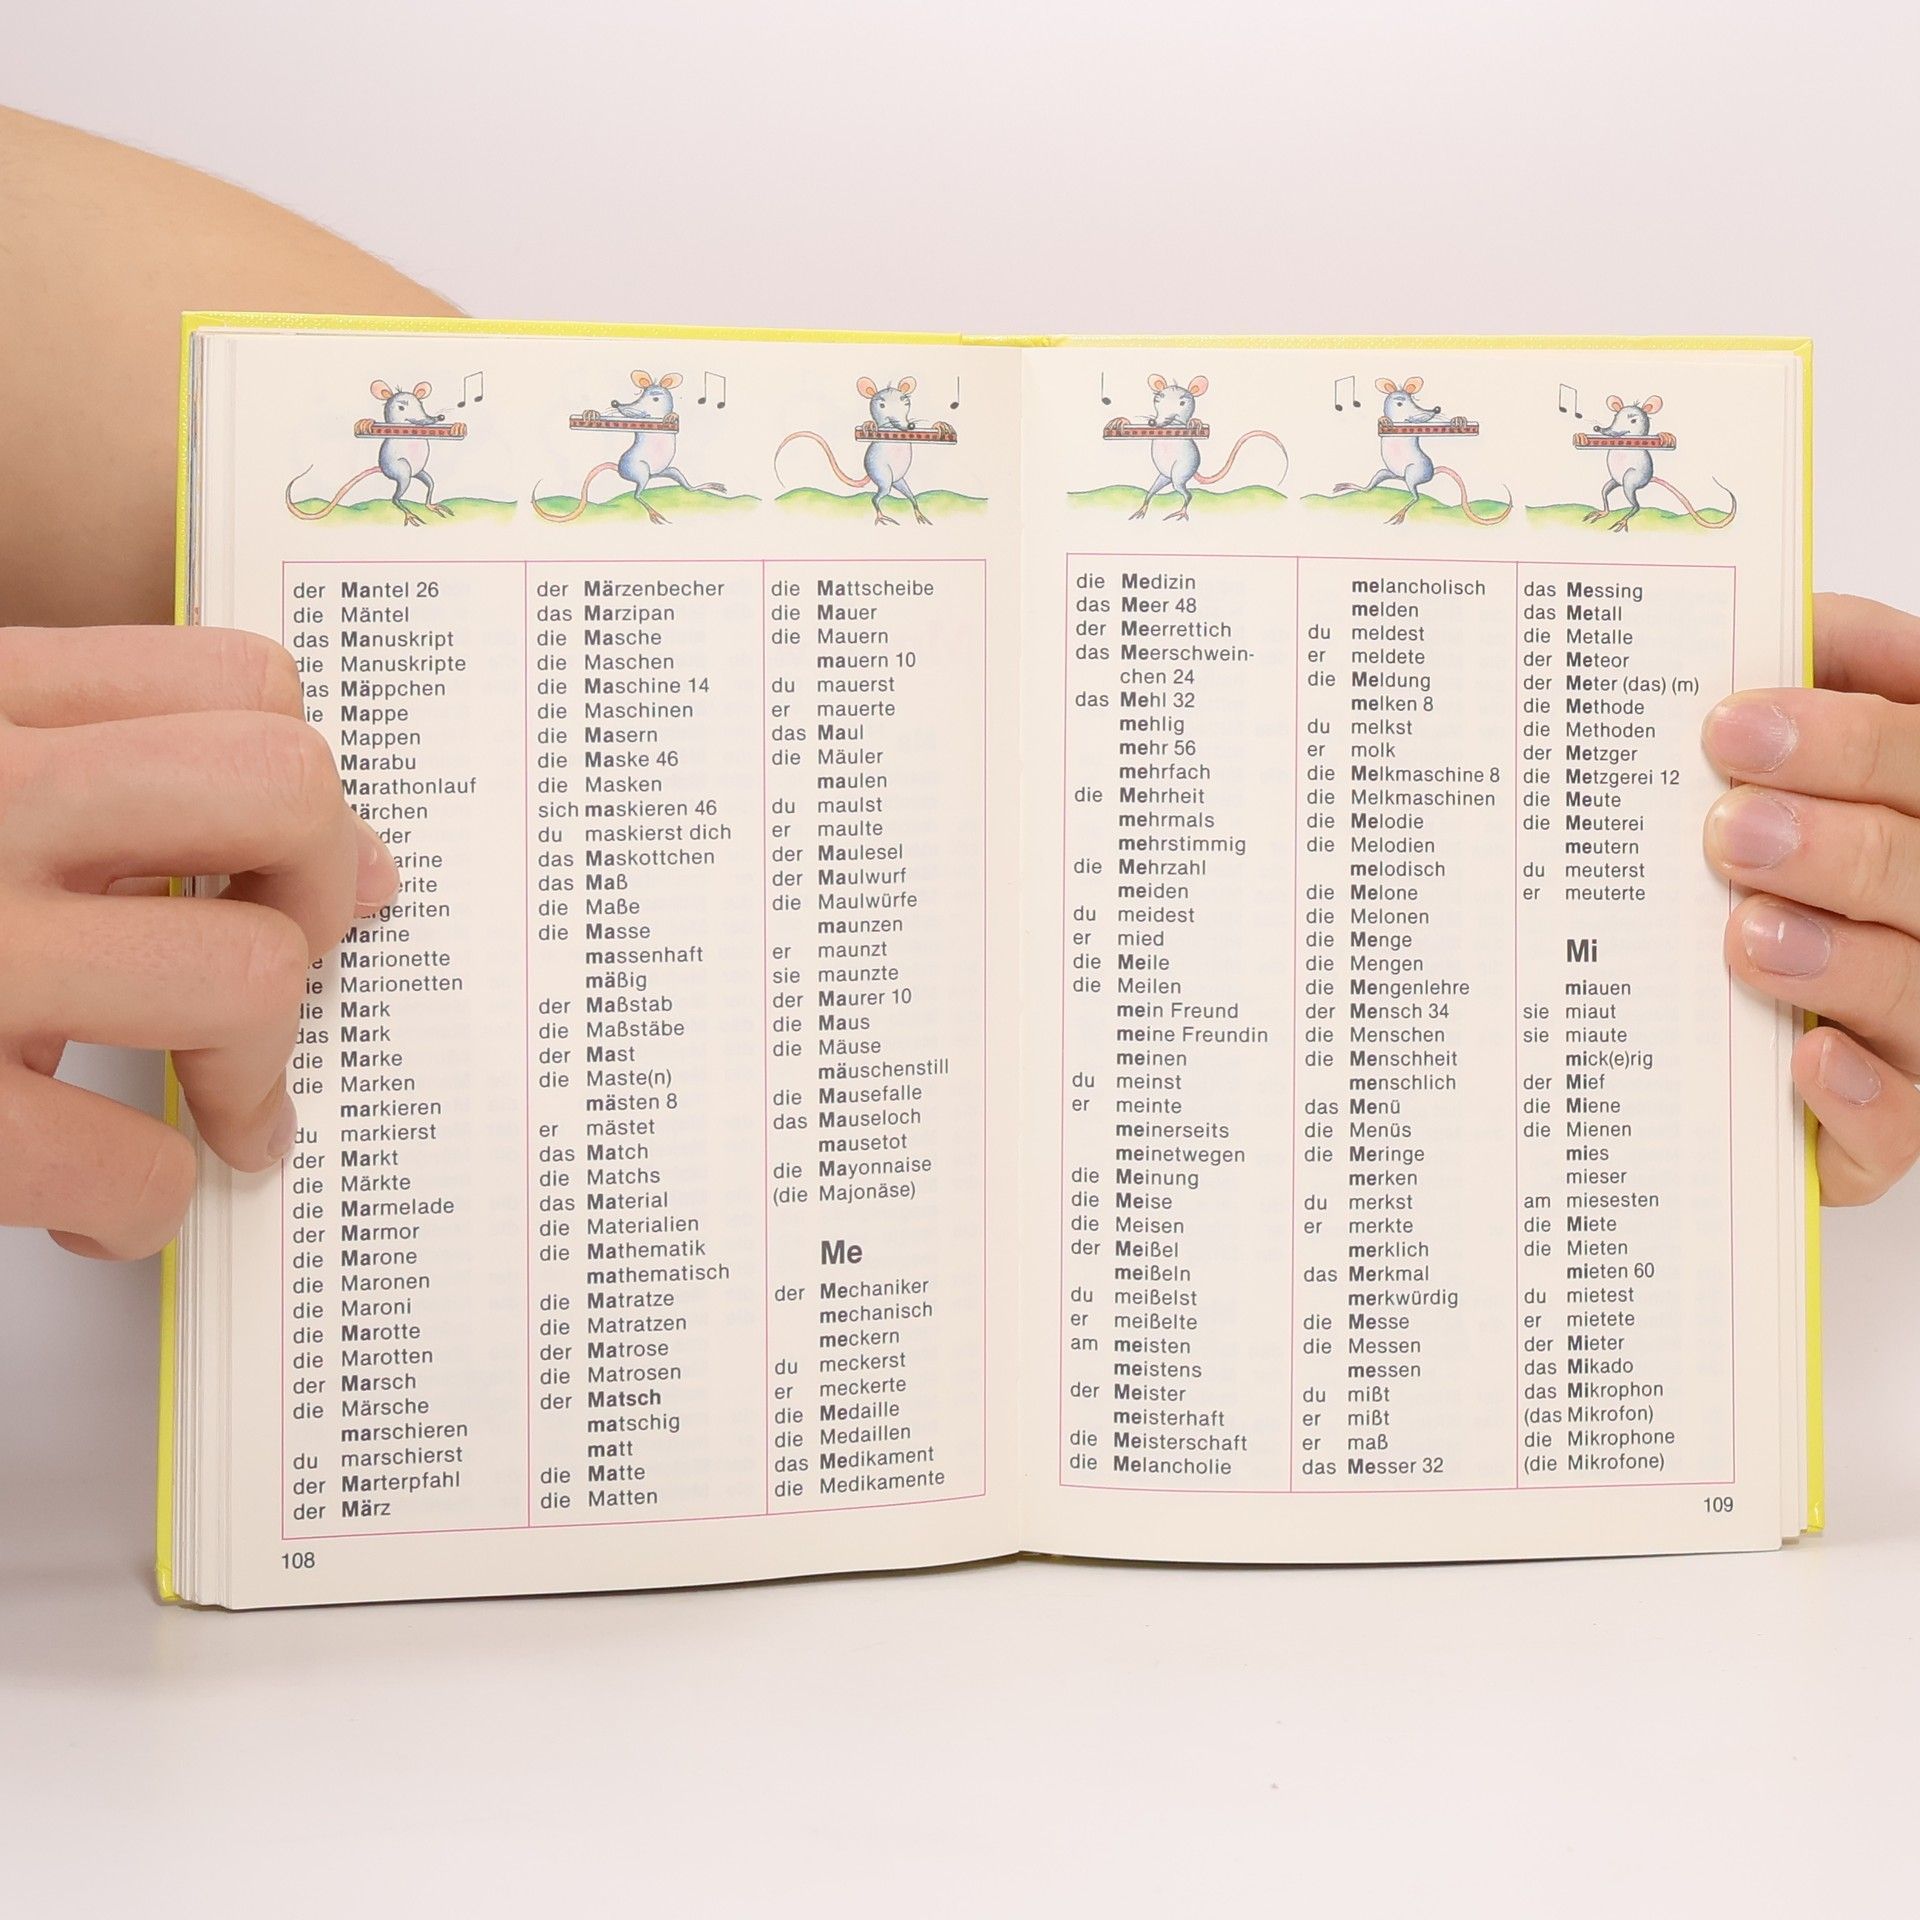 der Mantel 26
die Mäntel
das Manuskript
die Manuskripte
Mäppchen
Mappe
Mappen
Marabu
Marathonlauf
Märchen
Marine
die Marionette
die Marionetten
die Mark
das Mark
die Marke
die Marken
markieren
du markierst
der Markt
die Märkte
die Marmelade
der Marmor
die Marone
die Maronen
die Maroni
die Marotte
die Marotten
der Marsch
die Märsche
marschieren
du marschierst
der Marterpfahl
der März
108
der Märzenbecher
das Marzipan
die Masche
die Maschen
die Maschine 14
die Maschinen
die Masern
die Maske 46
die Masken
sich maskieren 46
du maskierst dich
das Maskottchen
das Maß
die Maße
die Masse
massenhaft
mäßig
der Maßstab
die Maßstäbe
der Mast
die Maste(n)
mästen 8
er mästet
das Match
die Matchs
das Material
die Materialien
die Mathematik
mathematisch
die Matratze
die Matratzen
der Matrose
die Matrosen
der Matsch
matschig
matt
die Matte
die Matten
die Mattscheibe
die Mauer
die Mauern
mauern 10
du mauerst
er mauerte
das Maul
die Mäuler
maulen
du maulst
er maulte
der Maulesel
der Maulwurf
die Maulwürfe
maunzen
er maunzt
sie maunzte
der Maurer 10
die Maus
die Mäuse
mäuschenstill
die Mausefalle
das Mauseloch
mausetot
die Mayonnaise
(die Majonäse)
Me
der Mechaniker
mechanisch
meckern
du meckerst
er meckerte
die Medaille
die Medaillen
das Medikament
die Medikamente
die Medizin
das Meer 48
der Meerrettich
das Meerschwein-
chen 24
das Mehl 32
mehlig
mehr 56
mehrfach
die Mehrheit
mehrmals
mehrstimmig
die Mehrzahl
meiden
du meidest
er mied
die Meile
die Meilen
mein Freund
meine Freundin
meinen
du meinst
er meinte
meinerseits
meinetwegen
die Meinung
die Meise
die Meisen
der Meißel
meißeln
du meißelst
er meißelte
am meisten
meistens
der Meister
meisterhaft
die Meisterschaft
die Melancholie
melancholisch
melden
du meldest
er meldete
die Meldung
melken 8
du melkst
er molk
die Melkmaschine 8
die Melkmaschinen
die Melodie
die Melodien
melodisch
die Melone
die Melonen
die Menge
die Mengen
die Mengenlehre
der Mensch 34
die Menschen
die Menschheit
menschlich
das Menü
die Menüs
die Meringe
merken
du merkst
er merkte
merklich
das Merkmal
merkwürdig
die Messe
die Messen
messen
du mißt
er mißt
er maß
das Messer 32
das Messing
das Metall
die Metalle
der Meteor
der Meter (das) (m)
die Methode
die Methoden
der Metzger
die Metzgerei 12
die Meute
die Meuterei
meutern
du meuterst
er meuterte
Mi
miauen
sie miaut
sie miaute
mick(e)rig
der Mief
die Miene
die Mienen
mies
mieser
am miesesten
die Miete
die Mieten
mieten 60
du mietest
er mietete
der Mieter
das Mikado
das Mikrophon
(das Mikrofon)
die Mikrophone
(die Mikrofone)
109